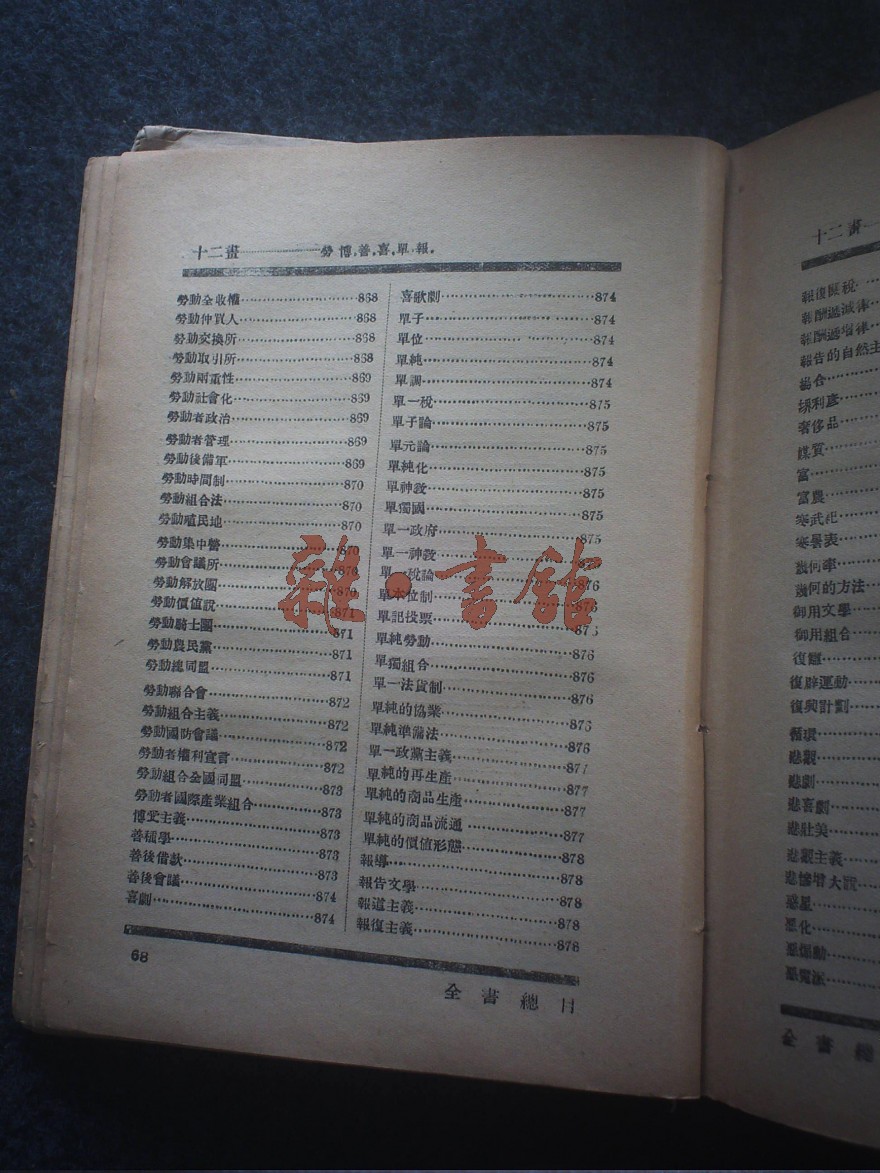 十二畫……勞.博.善.喜.單.報.
勞動全收權……868
勞動仲買人……868
勞動交換所……868
勞動取引所……868
勞動兩重性……869
勞動社會化……869
勞動者政治……869
勞動者管理……869
勞動後備軍……869
勞動時間制……870
勞動組合法……870
勞動殖民地……870
勞動集中營……870
勞動會議所……870
勞動解放團……870
勞動價值說……871
勞動騎士團……871
勞動農民黨……871
勞動總同盟……871
勞動聯合會……872
勞動組合主義……872
勞動國防會議……872
勞動者權利宣言……872
勞動組合全國同盟……873
勞動者國際產業組合……873
博愛主義……873
善種學……873
善後借款……873
善後會議……874
喜劇……874
喜歌劇……874
單子……874
單位……874
單純……874
單調……874
單一稅……875
單子論……875
單元論……875
單純化……875
單神教……875
單獨國……875
單一政府……875
單一神教……
單一稅論……876
單本位制……876
單記投票……876
單純勞動……876
單獨組合……876
單一法貨制……876
單純的協業……876
單純準備法……876
單一政黨主義……877
單純的再生產……877
單純的商品生產……877
單純的商品流通……877
單純的價值形態……878
報導……878
報告文學……878
報道主義……878
報復主義……878
68
全書總目
雜·書館
十二畫
報復關稅
報酬遞減律
報酬遞增律
報告的自然主
揚合
奢侈品
媒質
富
富農
寒武紀
寒暑表
幾何率
幾何的方法
御用文學
御用組合
復辟運動
復興計劃
循環
悲觀
悲劇
悲喜劇
悲壯美
悲觀主義
惑星
惡化
全書總